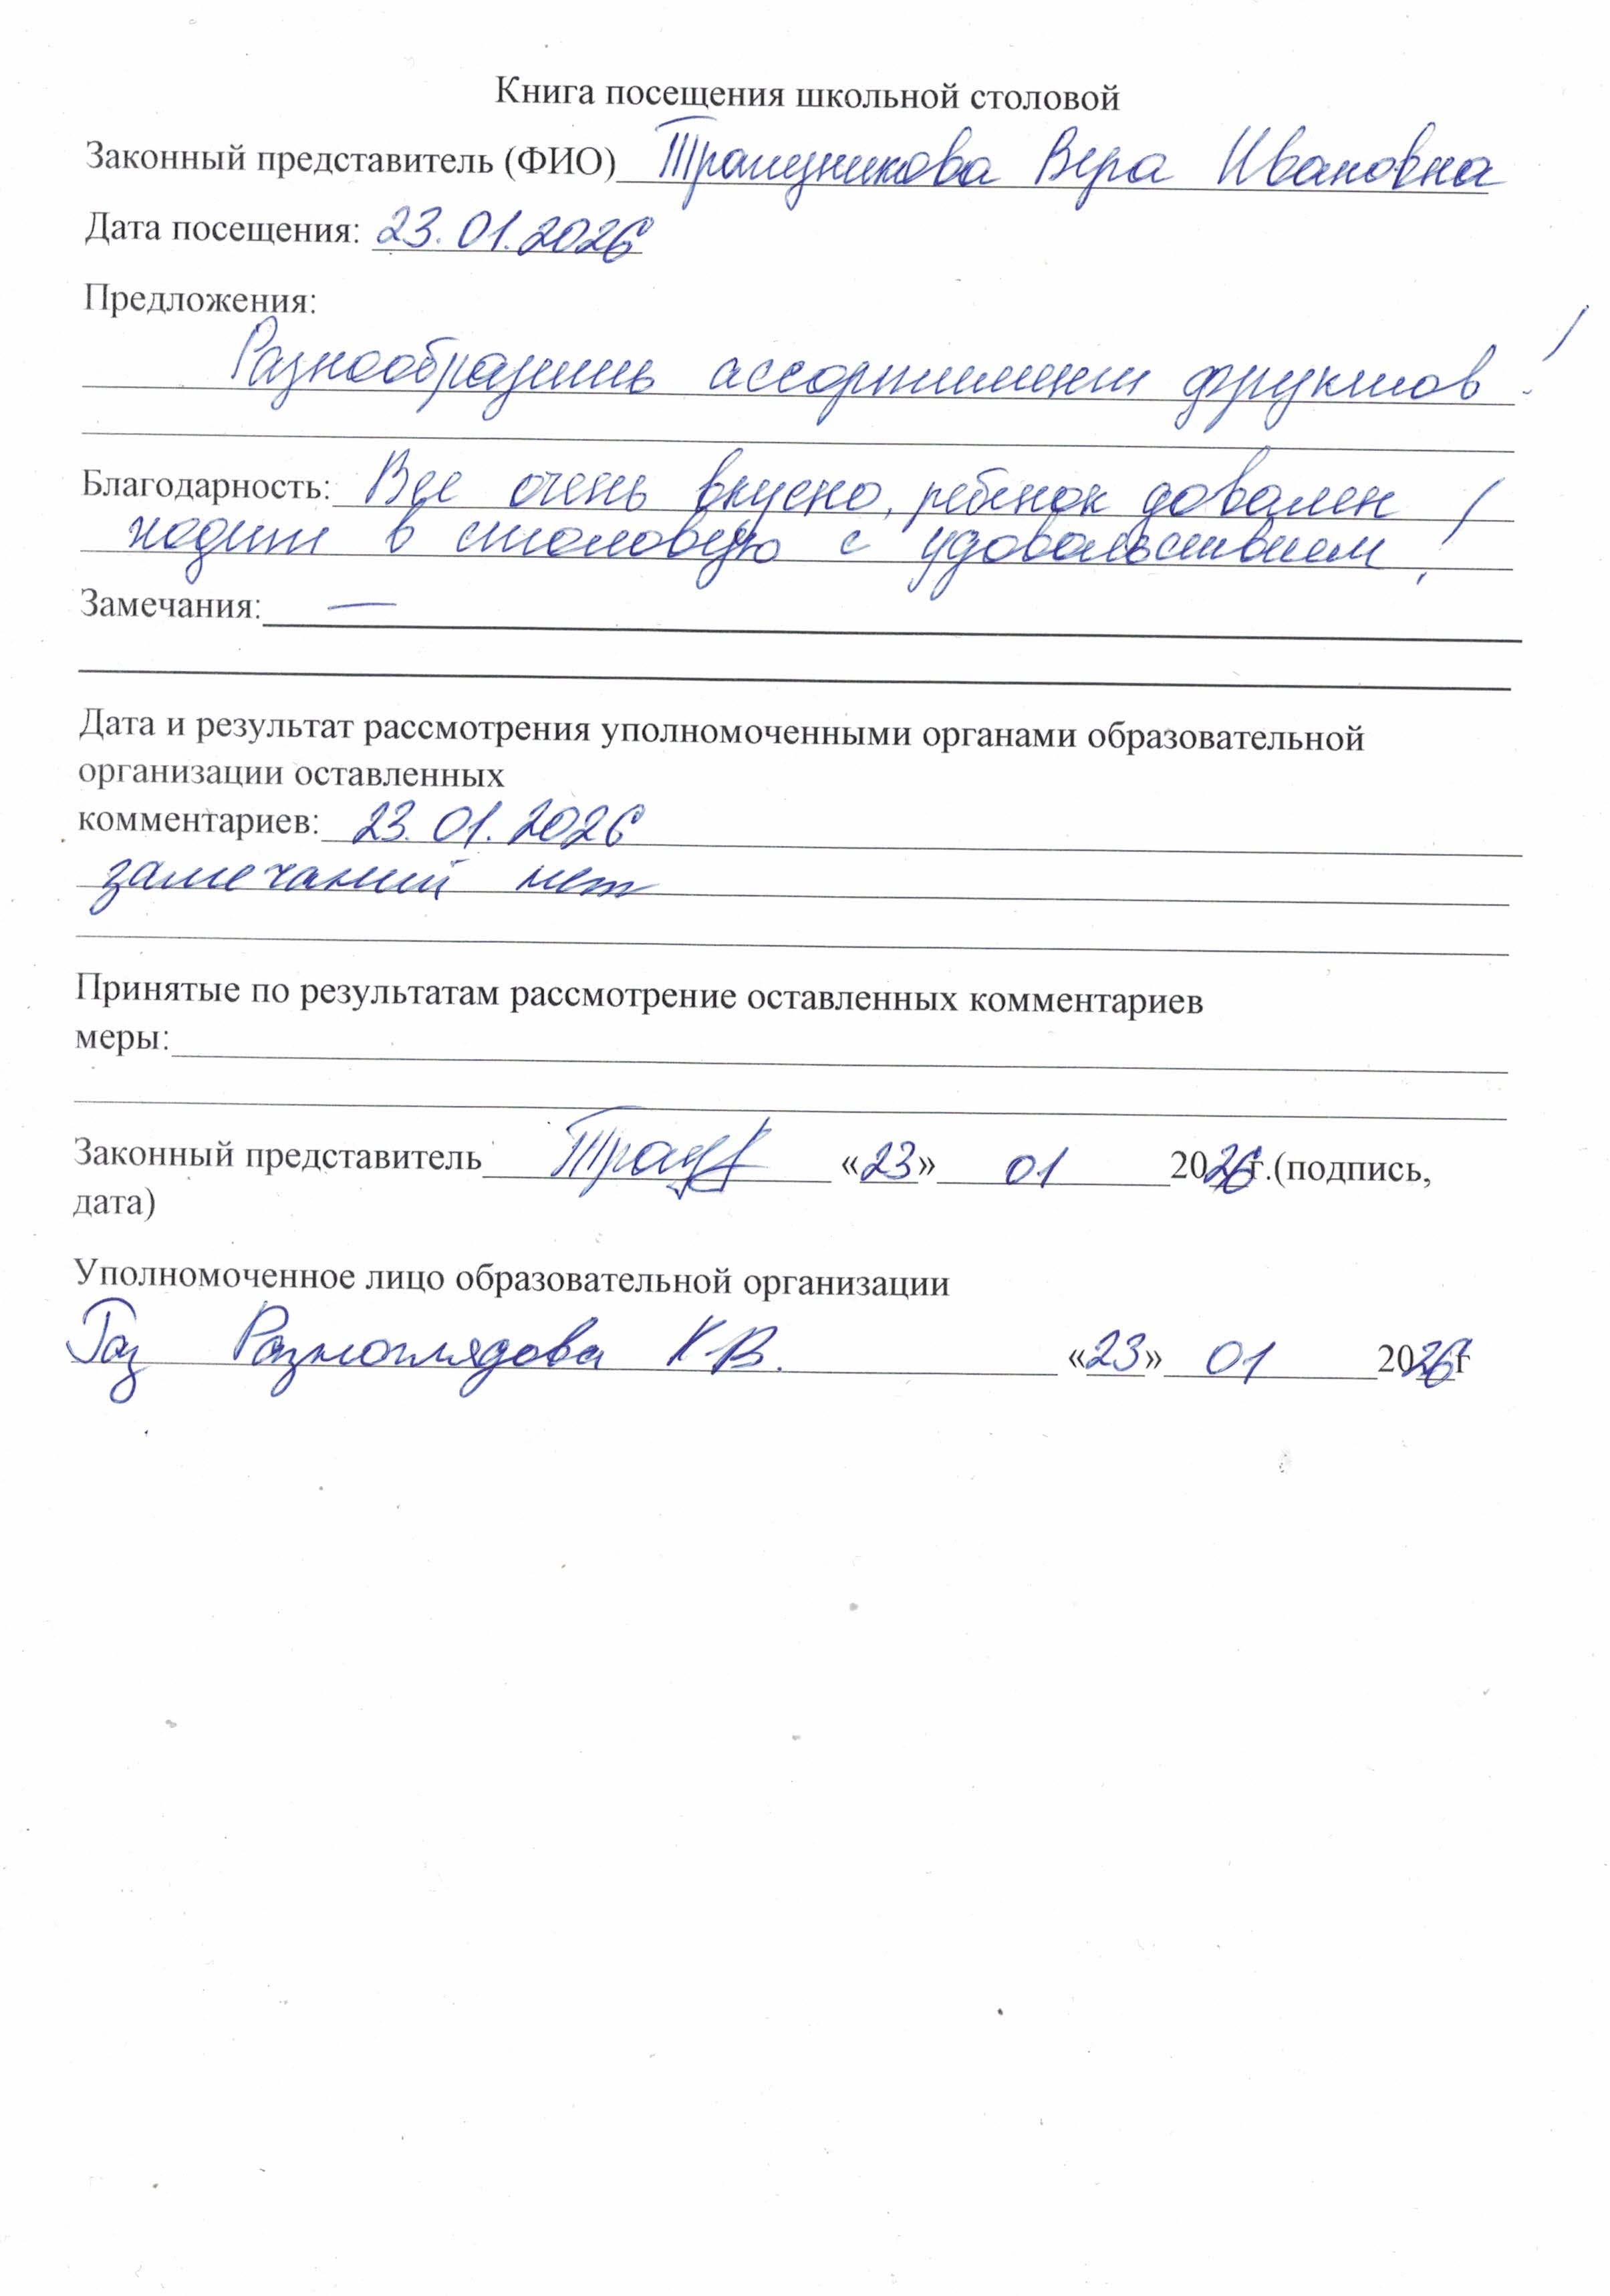 Книга посещения школьной столовой
Законный представитель (ФИО) Трапезникова Вера Ивановна
Дата посещения: 23.01.2026
Предложения:
Разнообразить ассортимент фруктов!
Благодарность: Все очень вкусно, ребенок доволен
ходит в столовую с удовольствием!
Замечания: —
Дата и результат рассмотрения уполномоченными органами образовательной
организации оставленных
комментариев: 23.01.2026
замечаний нет
Принятые по результатам рассмотрение оставленных комментариев
меры:
Законный представитель «23» 01 2026г.(подпись,
дата)
Уполномоченное лицо образовательной организации
Разноглядова К.В. «23» 01 2026г